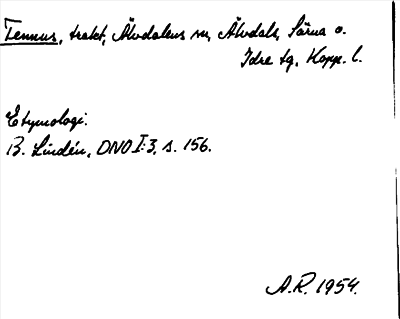 Tennus, trakt, Älvdalens sn, Älvdals, Särna o.
Idre tg, Kopp. l.
Etymologi:
B. Lindén, DNO I:3, s. 156.
A.R. 1954.